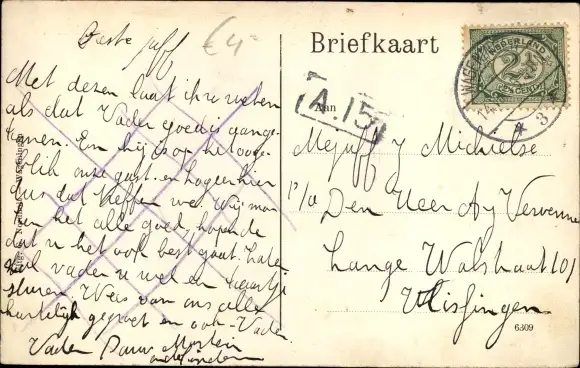 Beste juff
€ 4=
Met dezen laat ik u weten
als dat Vader goed is aange-
komen. En hij is op het ooge-
blik onze gast en logeer hier
dus dat treffen we. Wij ma-
ken het alle goed, hopende
dat u het ook best gaat. Later
zal vader u wel een kaartje
sturen. Wees van ons alle
hartelijk gegroet en ook Vader
Vader
en kinderen
Briefkaart
Aan
A.15
NEDERLAND
2½
CENT
Mejuff J Michielse
p/a Den Heer A J Vervenne
Lange Walstraat 101
Vlissingen
6309